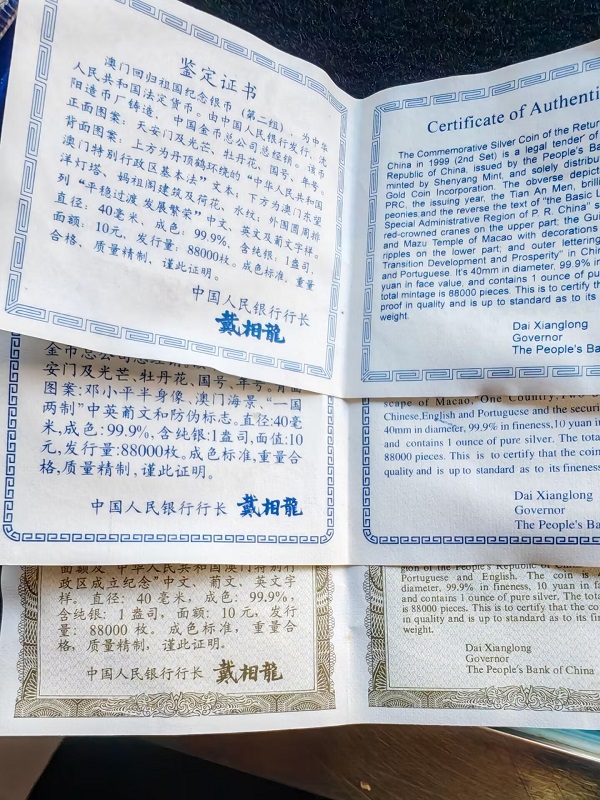 鉴定证书
澳门回归祖国纪念银币（第二组），为中华
人民共和国法定货币。由中国人民银行发行，沈
阳造币厂铸造，中国金币总公司总经销。该币
正面图案：天安门及光芒、牡丹花、国号、年号。
背面图案：上方为丹顶鹤环绕的“中华人民共和国
澳门特别行政区基本法”文本，下方为澳门东望
洋灯塔、妈祖阁建筑及荷花、水纹；外围圆周排
列“平稳过渡 发展繁荣”中文、英文及葡文字样。
直径：40毫米，成色：99.9%，含纯银：1盎司，
面额：10元，发行量：88000枚。成色标准，重量
合格，质量精制，谨此证明。
中国人民银行行长
戴相龍
Certificate of Authenti
The Commemorative Silver Coin of the Retur
China in 1999 (2nd Set) is a legal tender of
Republic of China, issued by the People's Ba
minted by Shenyang Mint, and solely distribut
Gold Coin Incorporation. The obverse depict
PRC, the issuing year, the Tian An Men, brill
peonies.and the reverse the text of "the Basic L
Special Administrative Region of P. R. China" s
red-crowned cranes on the upper part, the Gui
and Mazu Temple of Macao with decorations
ripples on the lower part; and outer lettering
Transition Development and Prosperity" in Chin
and Portuguese. It's 40mm in diameter, 99.9% in
yuan in face value, and contains 1 ounce of pur
total mintage is 88000 pieces. This is to certify that
proof in quality and is up to standard as to its
weight.
Dai Xianglong
Governor
The People's Ba
金币总公司总经销
安门及光芒、牡丹花、国号、年号。背面
图案：邓小平半身像、澳门海景、“一国
两制”中英葡文和防伪标志。直径:40毫
米,成色:99.9%,含纯银:1盎司,面值:10
元,发行量:88000枚。成色标准,重量合
格,质量精制,谨此证明。
中国人民银行行长 戴相龍
scape of Macao,"One Country,Two
Chinese,English and Portuguese and the securi
40mm in diameter, 99.9% in fineness,10 yuan in fa
and contains 1 ounce of pure silver. The tota
88000 pieces. This is to certify that the coin
quality and is up to standard as to its fineness
Dai Xianglong
Governor
The People's Ba
面额及“中华人民共和国澳门特别行
政区成立纪念”中文、葡文、英文字
样。直径：40 毫米，成色：99.9%，
含纯银：1 盎司，面额：10 元，发行
量：88000 枚。成色标准，重量合
格，质量精制，谨此证明。
中国人民银行行长 戴相龍
gion of the People's Republic of
Portuguese and English. The coin is
diameter, 99.9% in fineness, 10 yuan in fa
and contains 1 ounce of pure silver. The tota
is 88000 pieces. This is to certify that the co
in quality and is up to standard as to its fin
weight.
Dai Xianglong
Governor
The People's Bank of China